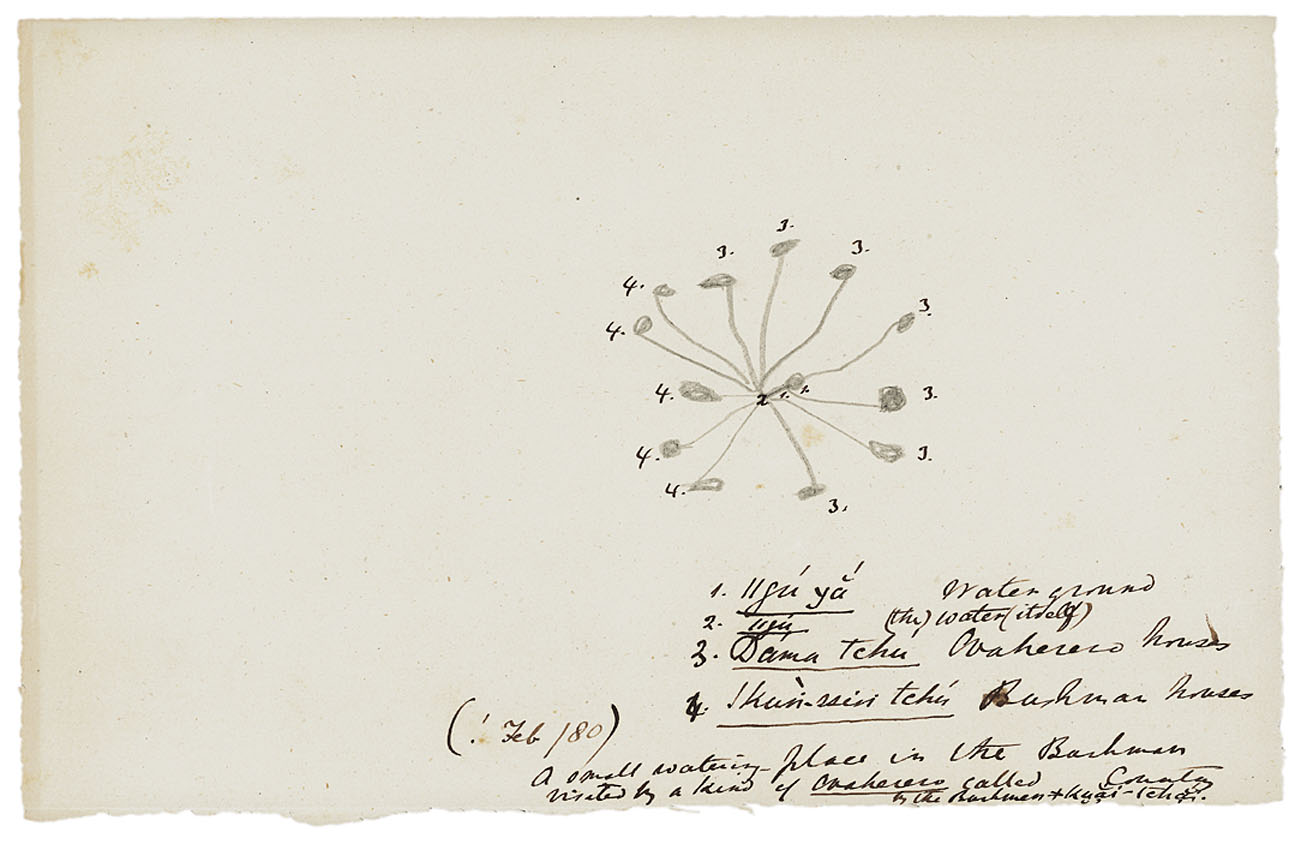 3.
3.
3.
4.
3.
4.
4.
2 1.
3.
4.
3.
4.
3.
1. ǁgú yắ Water ground
2. ǁgú (the) water (itself)
3. Dáma tchu Ovaherero houses
4. !kùṅ-ssin tchú Bushman houses
(! Feb /80)
A small watering-place in the Bushman Country
visited by a kind of Ovaherero called
by the Bushmen